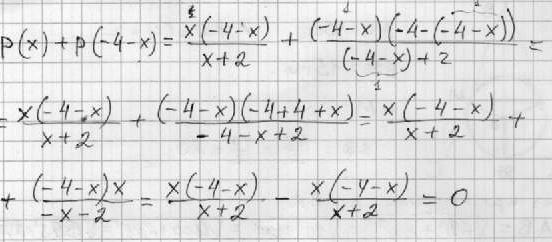 p(x) + p(-4-x) = x(-4-x)/(x+2) + (-4-x)(-4-(-4-x))/((-4-x)+2) =
= x(-4-x)/(x+2) + (-4-x)(-4+4+x)/(-4-x+2) = x(-4-x)/(x+2) +
+ (-4-x)x/(-x-2) = x(-4-x)/(x+2) - x(-4-x)/(x+2) = 0